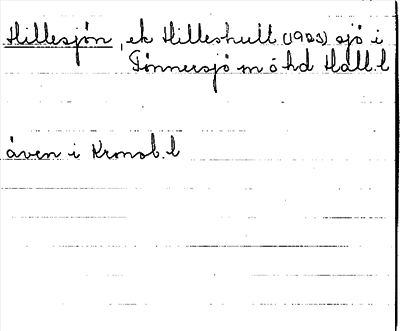 Hillesjön, ek Hilleshult (1923) sjö i
Tönnersjö sn o hd Hall. l
även i Kronob. l